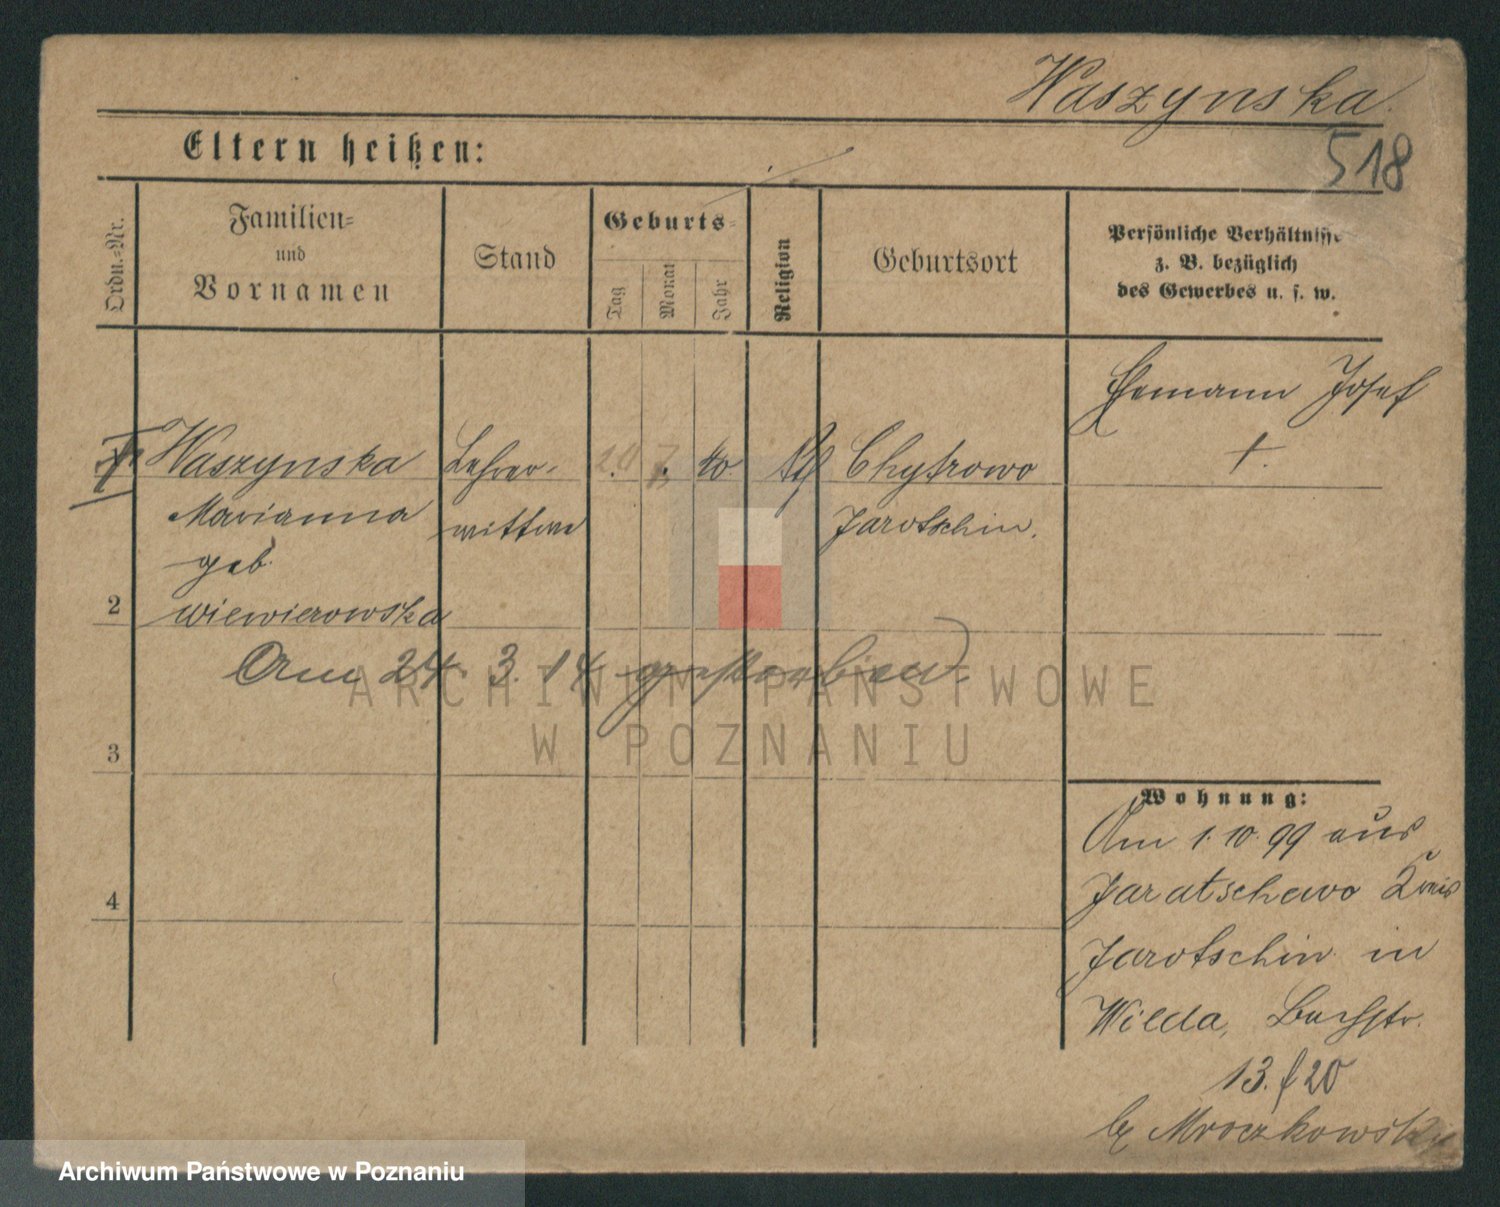 Waszynska.
518
Eltern heißen:
Ordn.-Nr.
Familien-
und
Vornamen
Stand
Geburts-
Tag
Monat
Jahr
Religion
Geburtsort
Persönliche Verhältnisse
z. B. bezüglich
des Gewerbes u. s. w.
Ehemann Josef
†.
Waszynska Lehrer- 40. Chytrowo
Marianna wittwe Jarotschin.
geb.
2 Wiewierowska
Am 24. 3. 14 gestorben.
3
4
Wohnung:
Am 1. 10. 99 aus
Jaratschewo Kreis
Jarotschin in
Wilda, Bachstr.
13. / 20
Mroczkowsky
ARCHIWUM PAŃSTWOWE
W POZNANIU
Archiwum Państwowe w Poznaniu